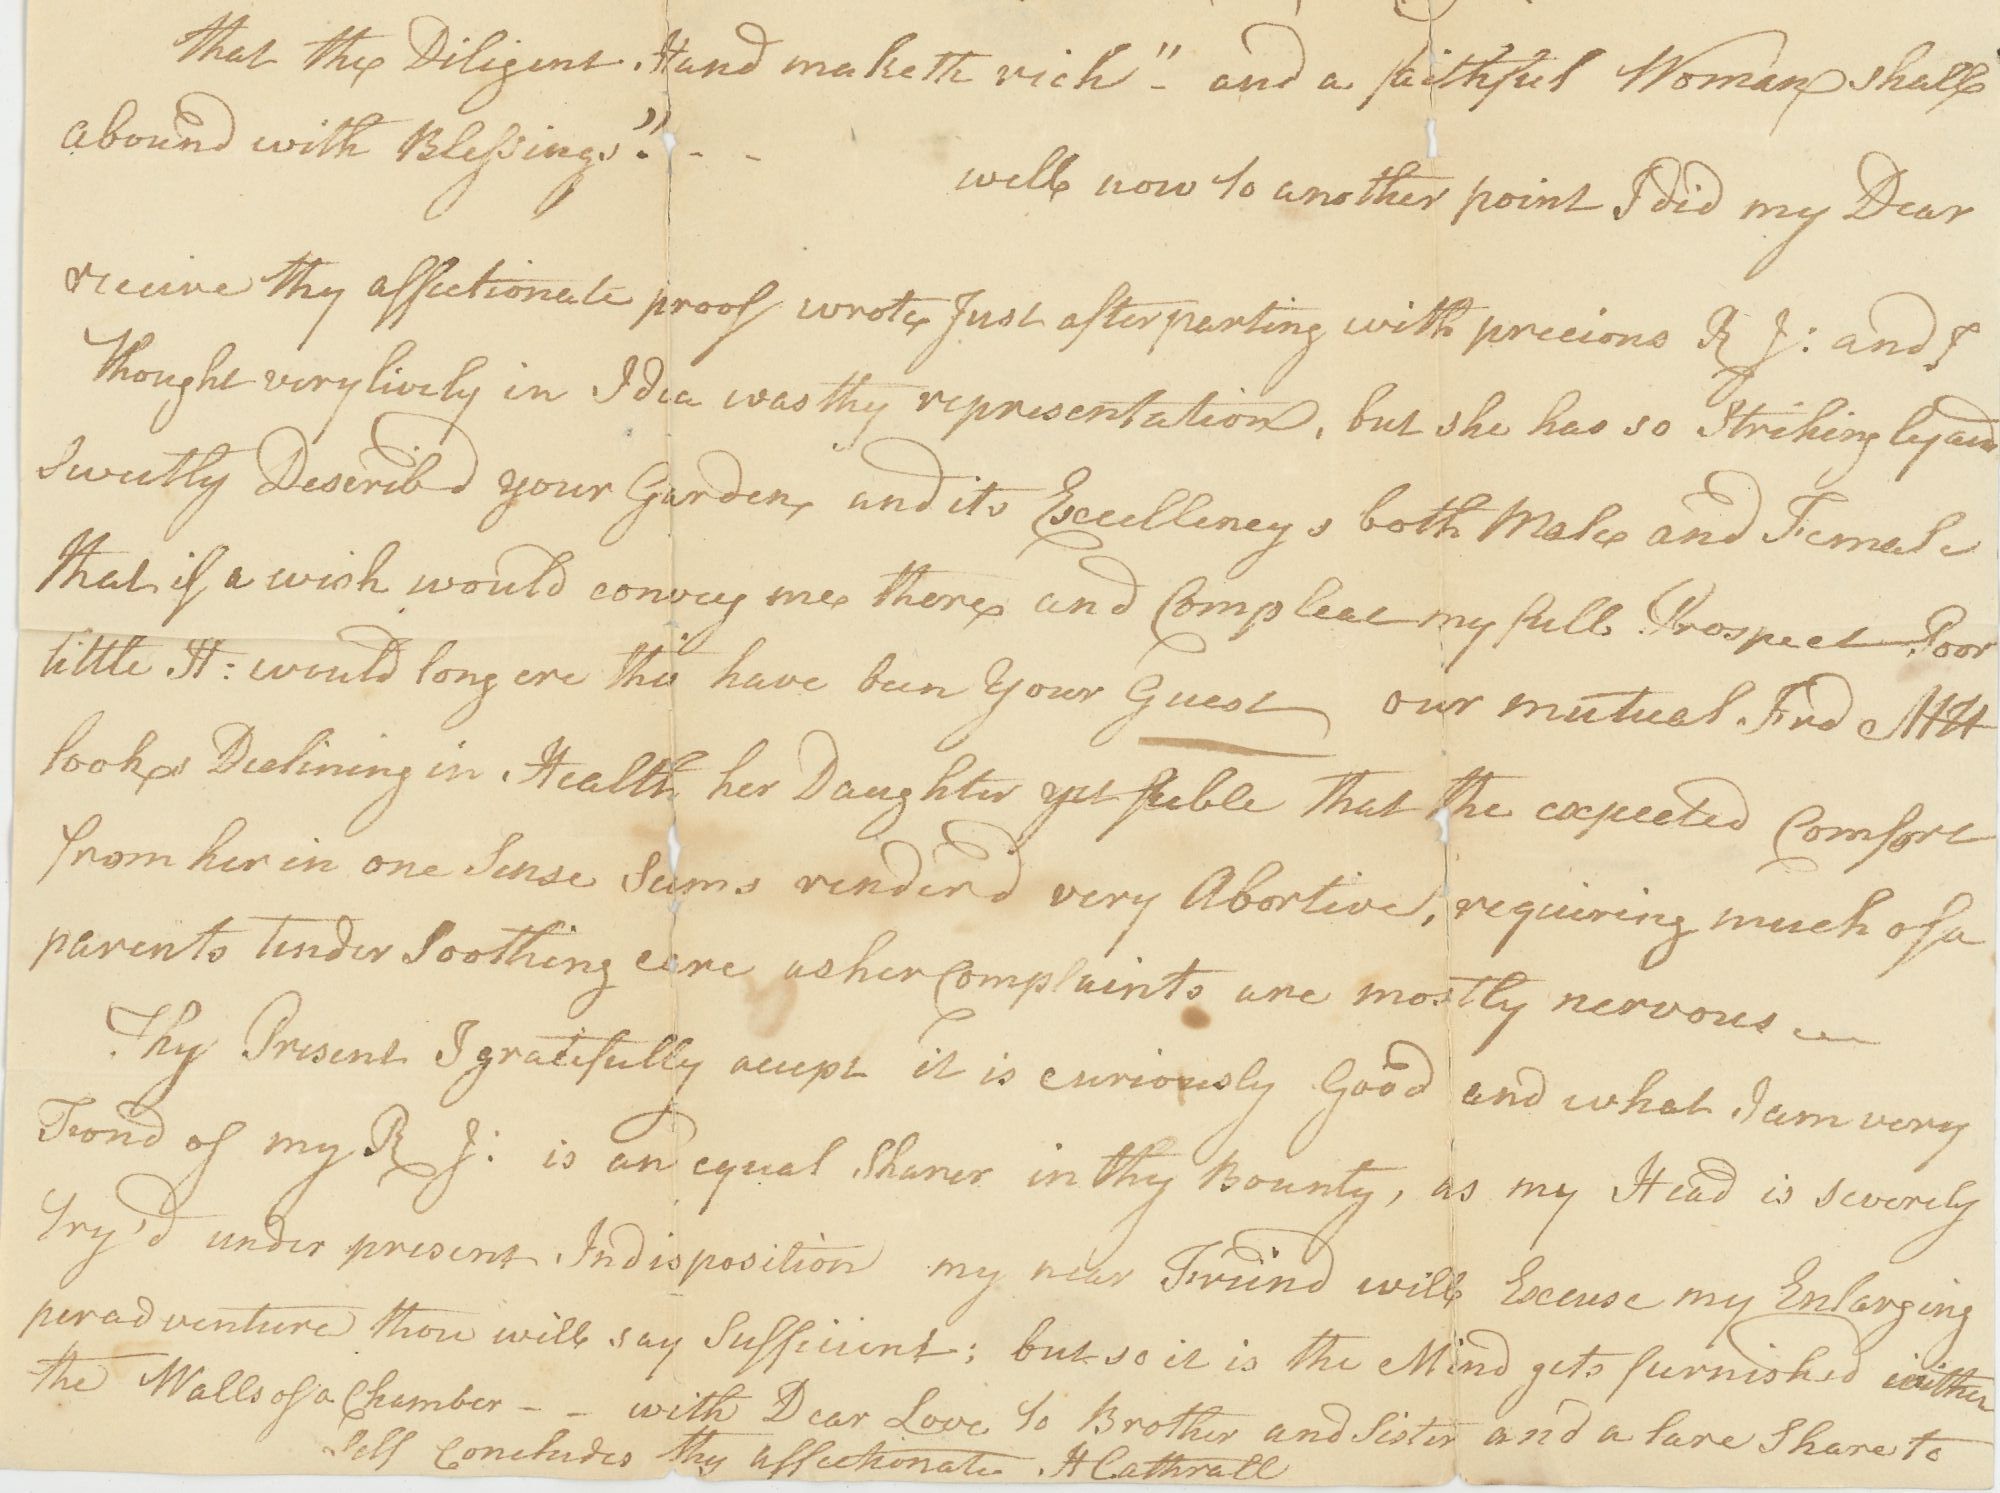 that the Diligent Hand maketh rich" - and a faithful Woman shall
abound with Blessings" - -
well now to another point I did my Dear
receive thy affectionate proof wrote Just after parting with precious R J: and I
Thought very lively in Idea was thy representation, but she has so Strikingly and
Sweetly Describ'd your Garden, and its Excellencys both Male and Female
that if a wish would convey me there and Compleat my full Prospect Poor
little H: would long ere this have been Your Guest our mutual Frd MH
looks Declining in Health her Daughter yet feeble that the expected Comfort
from her in one Sense Seems render'd very Abortive, requiring much of a
parents tender Soothing care as her Complaints are mostly nervous
Thy Present I gratefully accept it is curiously Good and what I am very
Fond of my R J: is an equal Sharer in thy Bounty, as my Head is severely
try'd under present Indisposition my near Friend will Excuse my Enlarging
peradventure thou will say Sufficient; but so it is the Mind gets furnished within
the Walls of a Chamber - - with Dear Love to Brother and Sister and a lare Share to
Self Concludes thy affectionate H Cathrall